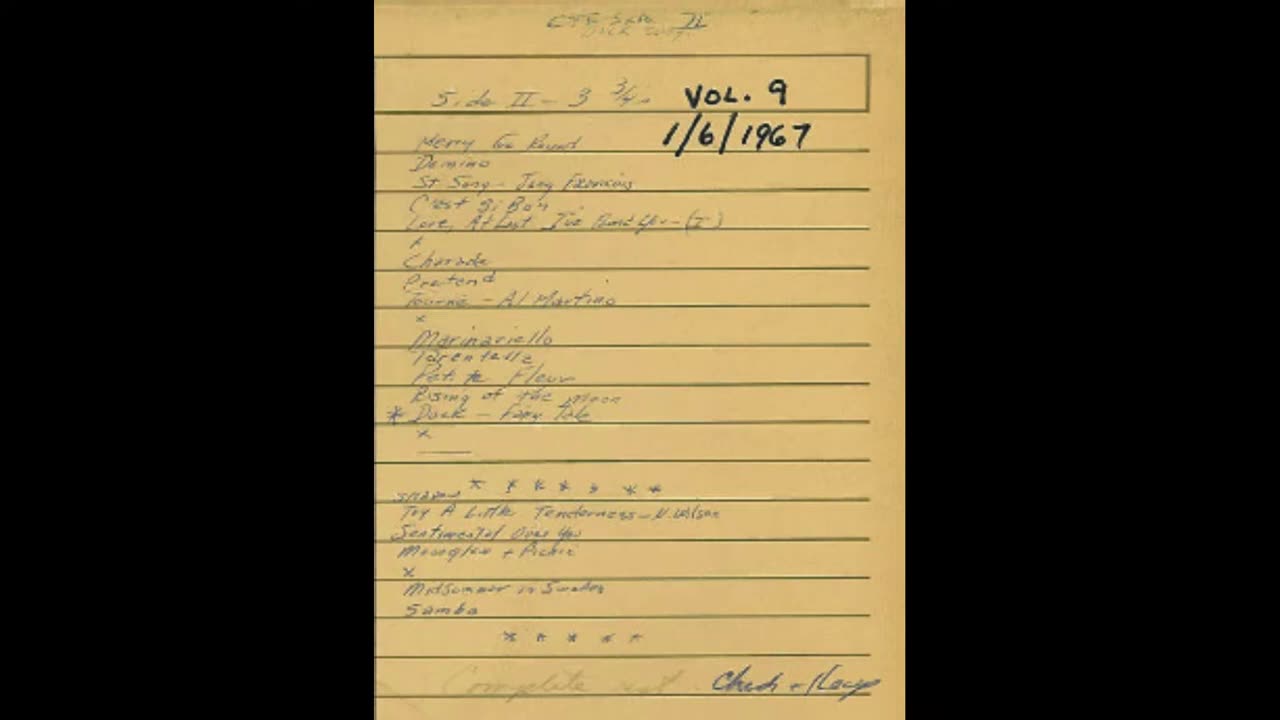 II
Side II - 3 3/4
VOL. 9
1/6/1967
Merry Go Round
Domino
St Song - Tony
C'est Si Bon
Love, At Last I've Found You - (I)
x
Charade
Pretend
- Al Martino
x
Marinariello
Tarentella
Petite Fleur
Rising of the Moon
* Dock - Fairy Tale
x
* * * * * * *
Try A Little Tenderness - N. Wilson
Sentimental Over You
Moonglow + Picnic
x
Midsummer in Sweden
Samba
* * * * *
Complete